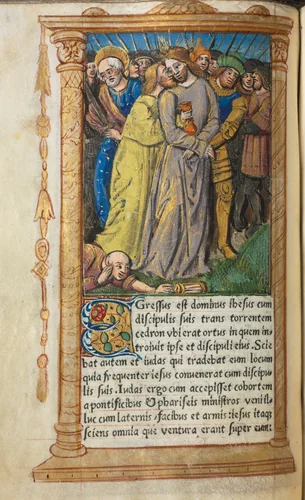 EGressus est dominus ihesus cum
discipulis suis trans torrentem
cedron ubi erat ortus in quem in
troiuit ipse et discipuli eius. Scie
bat autem et iudas qui tradebat eum locum
quia frequenter iesus convenerat cum discipu
lis suis. Iudas ergo cum accepisset cohortem
a pontificibus & phariseis ministros venit il
luc cum laternis & facibus et armis: iesus itaq;
sciens omnia que ventura erant super eum: